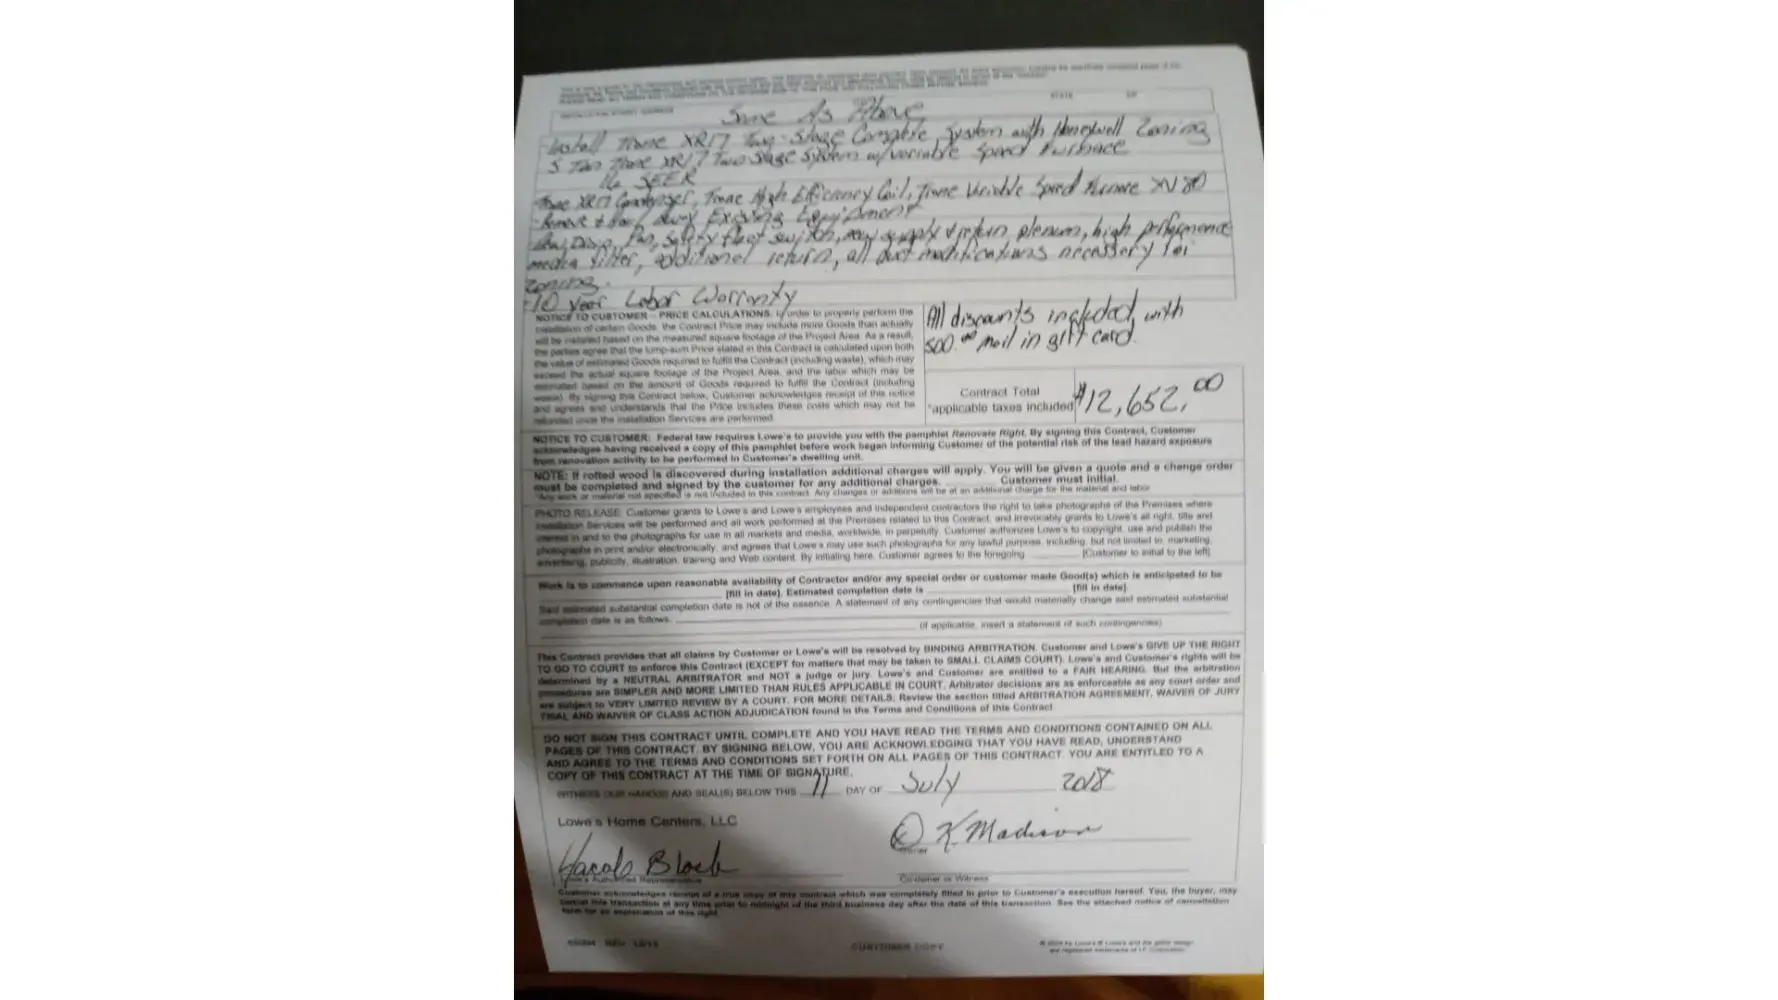 INSTALLATION STREET ADDRESS STATE ZIP
Same As Above
-Install Trane XR17 Two-Stage Complete System with Honeywell Zoning
5 Ton Trane XR17 Two Stage System w/variable Speed Furnace
16 SEER
Trane XR17 Condenser, Trane High Efficiency Coil, Trane Variable Speed Furnace XV80
-Remove & haul away Existing Equipment
Pan, Safety float switch, new supply & return plenum, high performance
media filter, additional return, all duct modifications necessary for
zoning.
-10 year Labor Warranty
NOTICE TO CUSTOMER – PRICE CALCULATIONS: In order to properly perform the
installation of certain Goods, the Contract Price may include more Goods than actually
will be installed based on the measured square footage of the Project Area. As a result,
the parties agree that the lump-sum Price stated in this Contract is calculated upon both
the value of estimated Goods required to fulfill the Contract (including waste), which may
exceed the actual square footage of the Project Area, and the labor which may be
estimated based on the amount of Goods required to fulfill the Contract (including
waste). By signing this Contract below, Customer acknowledges receipt of this notice
and agrees and understands that the Price includes these costs which may not be
refunded once the Installation Services are performed.
All discounts included, with
500.00 mail in gift card.
Contract Total
*applicable taxes included
$12,652.00
NOTICE TO CUSTOMER: Federal law requires Lowe's to provide you with the pamphlet Renovate Right. By signing this Contract, Customer
acknowledges having received a copy of this pamphlet before work began informing Customer of the potential risk of the lead hazard exposure
from renovation activity to be performed in Customer's dwelling unit.
NOTE: If rotted wood is discovered during installation additional charges will apply. You will be given a quote and a change order
must be completed and signed by the customer for any additional charges. Customer must initial.
*Any work or material not specified is not included in this contract. Any changes or additions will be at an additional charge for the material and labor
PHOTO RELEASE: Customer grants to Lowe's and Lowe's employees and independent contractors the right to take photographs of the Premises where
Installation Services will be performed and all work performed at the Premises related to this Contract, and irrevocably grants to Lowe's all right, title and
interest in and to the photographs for use in all markets and media, worldwide, in perpetuity. Customer authorizes Lowe's to copyright, use and publish the
photographs in print and/or electronically, and agrees that Lowe's may use such photographs for any lawful purpose, including, but not limited to, marketing,
advertising, publicity, illustration, training and Web content. By initialing here, Customer agrees to the foregoing [Customer to initial to the left]
Work is to commence upon reasonable availability of Contractor and/or any special order or customer made Good(s) which is anticipated to be
[fill in date]. Estimated completion date is [fill in date].
Said estimated substantial completion date is not of the essence. A statement of any contingencies that would materially change said estimated substantial
completion date is as follows:
(if applicable, insert a statement of such contingencies)
This Contract provides that all claims by Customer or Lowe's will be resolved by BINDING ARBITRATION. Customer and Lowe's GIVE UP THE RIGHT
TO GO TO COURT to enforce this Contract (EXCEPT for matters that may be taken to SMALL CLAIMS COURT). Lowe's and Customer's rights will be
determined by a NEUTRAL ARBITRATOR and NOT a judge or jury. Lowe's and Customer are entitled to a FAIR HEARING. But the arbitration
procedures are SIMPLER AND MORE LIMITED THAN RULES APPLICABLE IN COURT. Arbitrator decisions are as enforceable as any court order and
are subject to VERY LIMITED REVIEW BY A COURT. FOR MORE DETAILS: Review the section titled ARBITRATION AGREEMENT, WAIVER OF JURY
TRIAL AND WAIVER OF CLASS ACTION ADJUDICATION found in the Terms and Conditions of this Contract
DO NOT SIGN THIS CONTRACT UNTIL COMPLETE AND YOU HAVE READ THE TERMS AND CONDITIONS CONTAINED ON ALL
PAGES OF THIS CONTRACT. BY SIGNING BELOW, YOU ARE ACKNOWLEDGING THAT YOU HAVE READ, UNDERSTAND
AND AGREE TO THE TERMS AND CONDITIONS SET FORTH ON ALL PAGES OF THIS CONTRACT. YOU ARE ENTITLED TO A
COPY OF THIS CONTRACT AT THE TIME OF SIGNATURE.
WITNESS OUR HAND(S) AND SEAL(S) BELOW THIS 11 DAY OF July 2018
Lowe's Home Centers, LLC
K Madison
Owner
Jacob Block
Lowe's Authorized Representative
Co-owner or Witness
Customer acknowledges receipt of a true copy of this contract which was completely filled in prior to Customer's execution hereof. You, the buyer, may
cancel this transaction at any time prior to midnight of the third business day after the date of this transaction. See the attached notice of cancellation
form for an explanation of this right.
CUSTOMER COPY